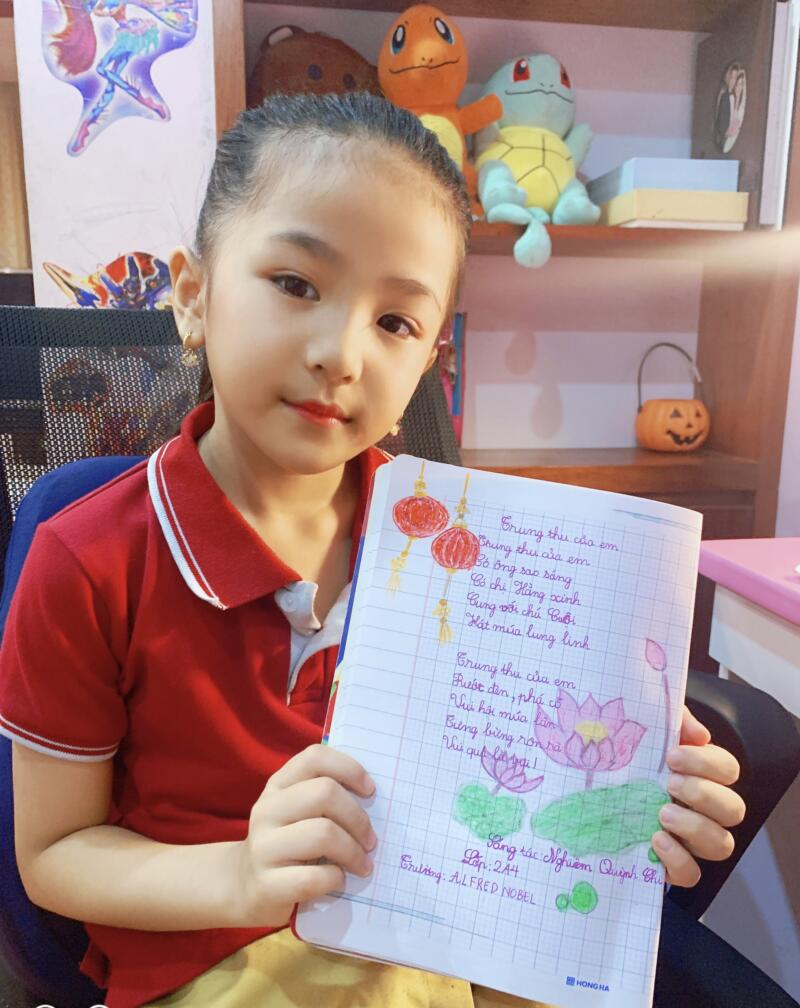 Trung thu của em
Trung thu của em
Có ông sao sáng
Có chị Hằng xinh
Cùng với chú Cuội
Hát múa lung linh
Trung thu của em
Rước đèn, phá cỗ
Vui hội múa lân
Tưng bừng rộn rã
Vui quá
Sáng tác: Nghiêm Quỳnh Chi
Lớp: 2A4
Trường: ALFRED NOBEL
HONG HA